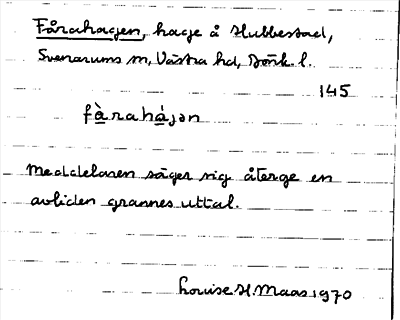 Fårahagen, hage å Hubbestad,
Svenarums sn, Västra hd, Jönk. l.
145
fàrahájən
Meddelaren säger sig återge en
avliden grannes uttal.
Louise H. Maas 1970